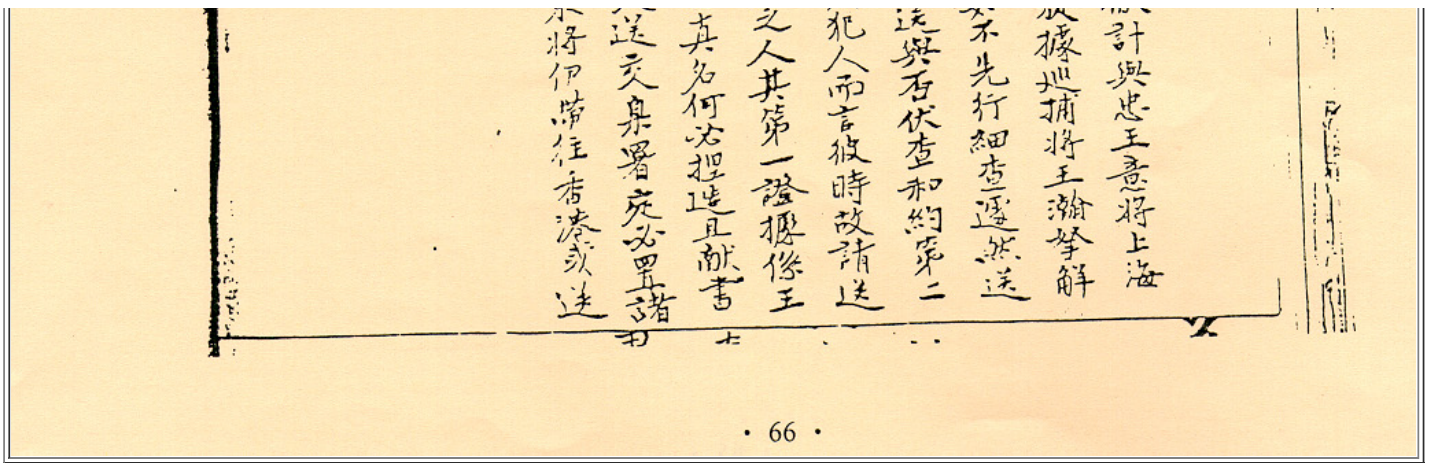 計與忠王意將上海
據巡捕將王瀚拏解
不先行細查遽然送
送與否伏查和約第二
犯人而言彼時故請送
之人其第一證據係王
真名何必捏造且献書
送交臬署定必置諸
將伊帶往香港或送
• 66 •